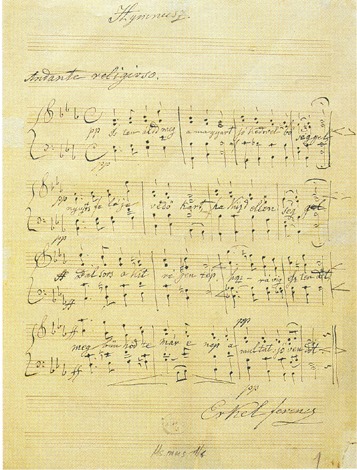 Hymnusz
Andante religioso.
pp Isten áld meg a magyart jó kedvel bő séggel
pp
pp nyujts feléje védő kart, ha küzd ellen
pp
ff Bal sors a kit régen tép, hoz reá víg
ff
ff meg bűnhődte már e nép a multat, jöven dőt
ff
ppp
pp
Erkel Ferencz